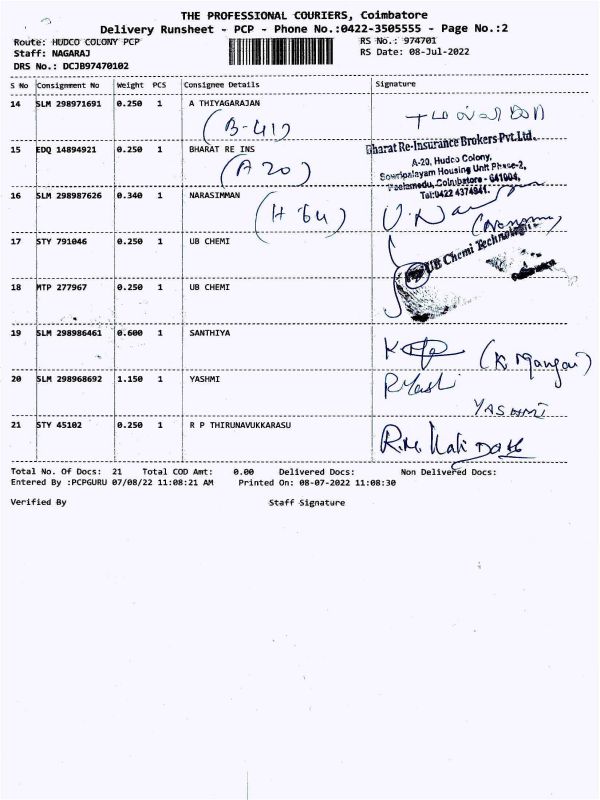 THE PROFESSIONAL COURIERS, Coimbatore
Delivery Runsheet - PCP - Phone No.:0422-3505555 - Page No.:2
Route: HUDCO COLONY PCP RS No.: 974701
Staff: NAGARAJ RS Date: 08-Jul-2022
DRS No.: DCJB97470102
S No Consignment No Weight PCS Consignee Details Signature
14 SLM 298971691 0.250 1 A THIYAGARAJAN
(B-41)
15 EDQ 14894921 0.250 1 BHARAT RE INS
(A 20)
Bharat Re-Insurance Brokers Pvt.Ltd.
A-20, Hudco Colony,
Sowripalayam Housing Unit Phase-2,
Peelamedu, Coimbatore - 641004.
Tel:0422 4374941.
16 SLM 298987626 0.340 1 NARASIMMAN
(H 64)
17 STY 791046 0.250 1 UB CHEMI
UB Chemi Technologies
18 MTP 277967 0.250 1 UB CHEMI
19 SLM 298986461 0.600 1 SANTHIYA
(K Mangai)
20 SLM 298968692 1.150 1 YASHMI
R Yash
YASHMI
21 STY 45102 0.250 1 R P THIRUNAVUKKARASU
Total No. Of Docs: 21 Total COD Amt: 0.00 Delivered Docs: Non Delivered Docs:
Entered By :PCPGURU 07/08/22 11:08:21 AM Printed On: 08-07-2022 11:08:30
Verified By Staff Signature